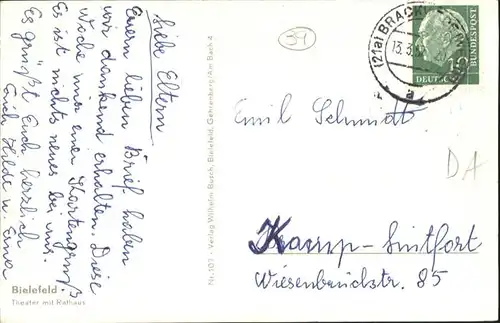 Liebe Eltern
Euern lieben Brief haben
wir dankend erhalten. Diese
Woche nur einen Kartengruß.
Es ist nichts neues bei uns.
Es grüßt Euch herzlich
Erich Hilde u. Erna
Bielefeld
Theater mit Rathaus
Nr. 101 - Verlag Wilhelm Busch, Bielefeld, Gehrenberg/Am Bach 4
39
(21a) BRACKWEDE
13.3.
a
10
DEUTSCHE
BUNDESPOST
Emil Schmidt
DA
Kamp-Lintfort
Wiesenbruchstr. 85